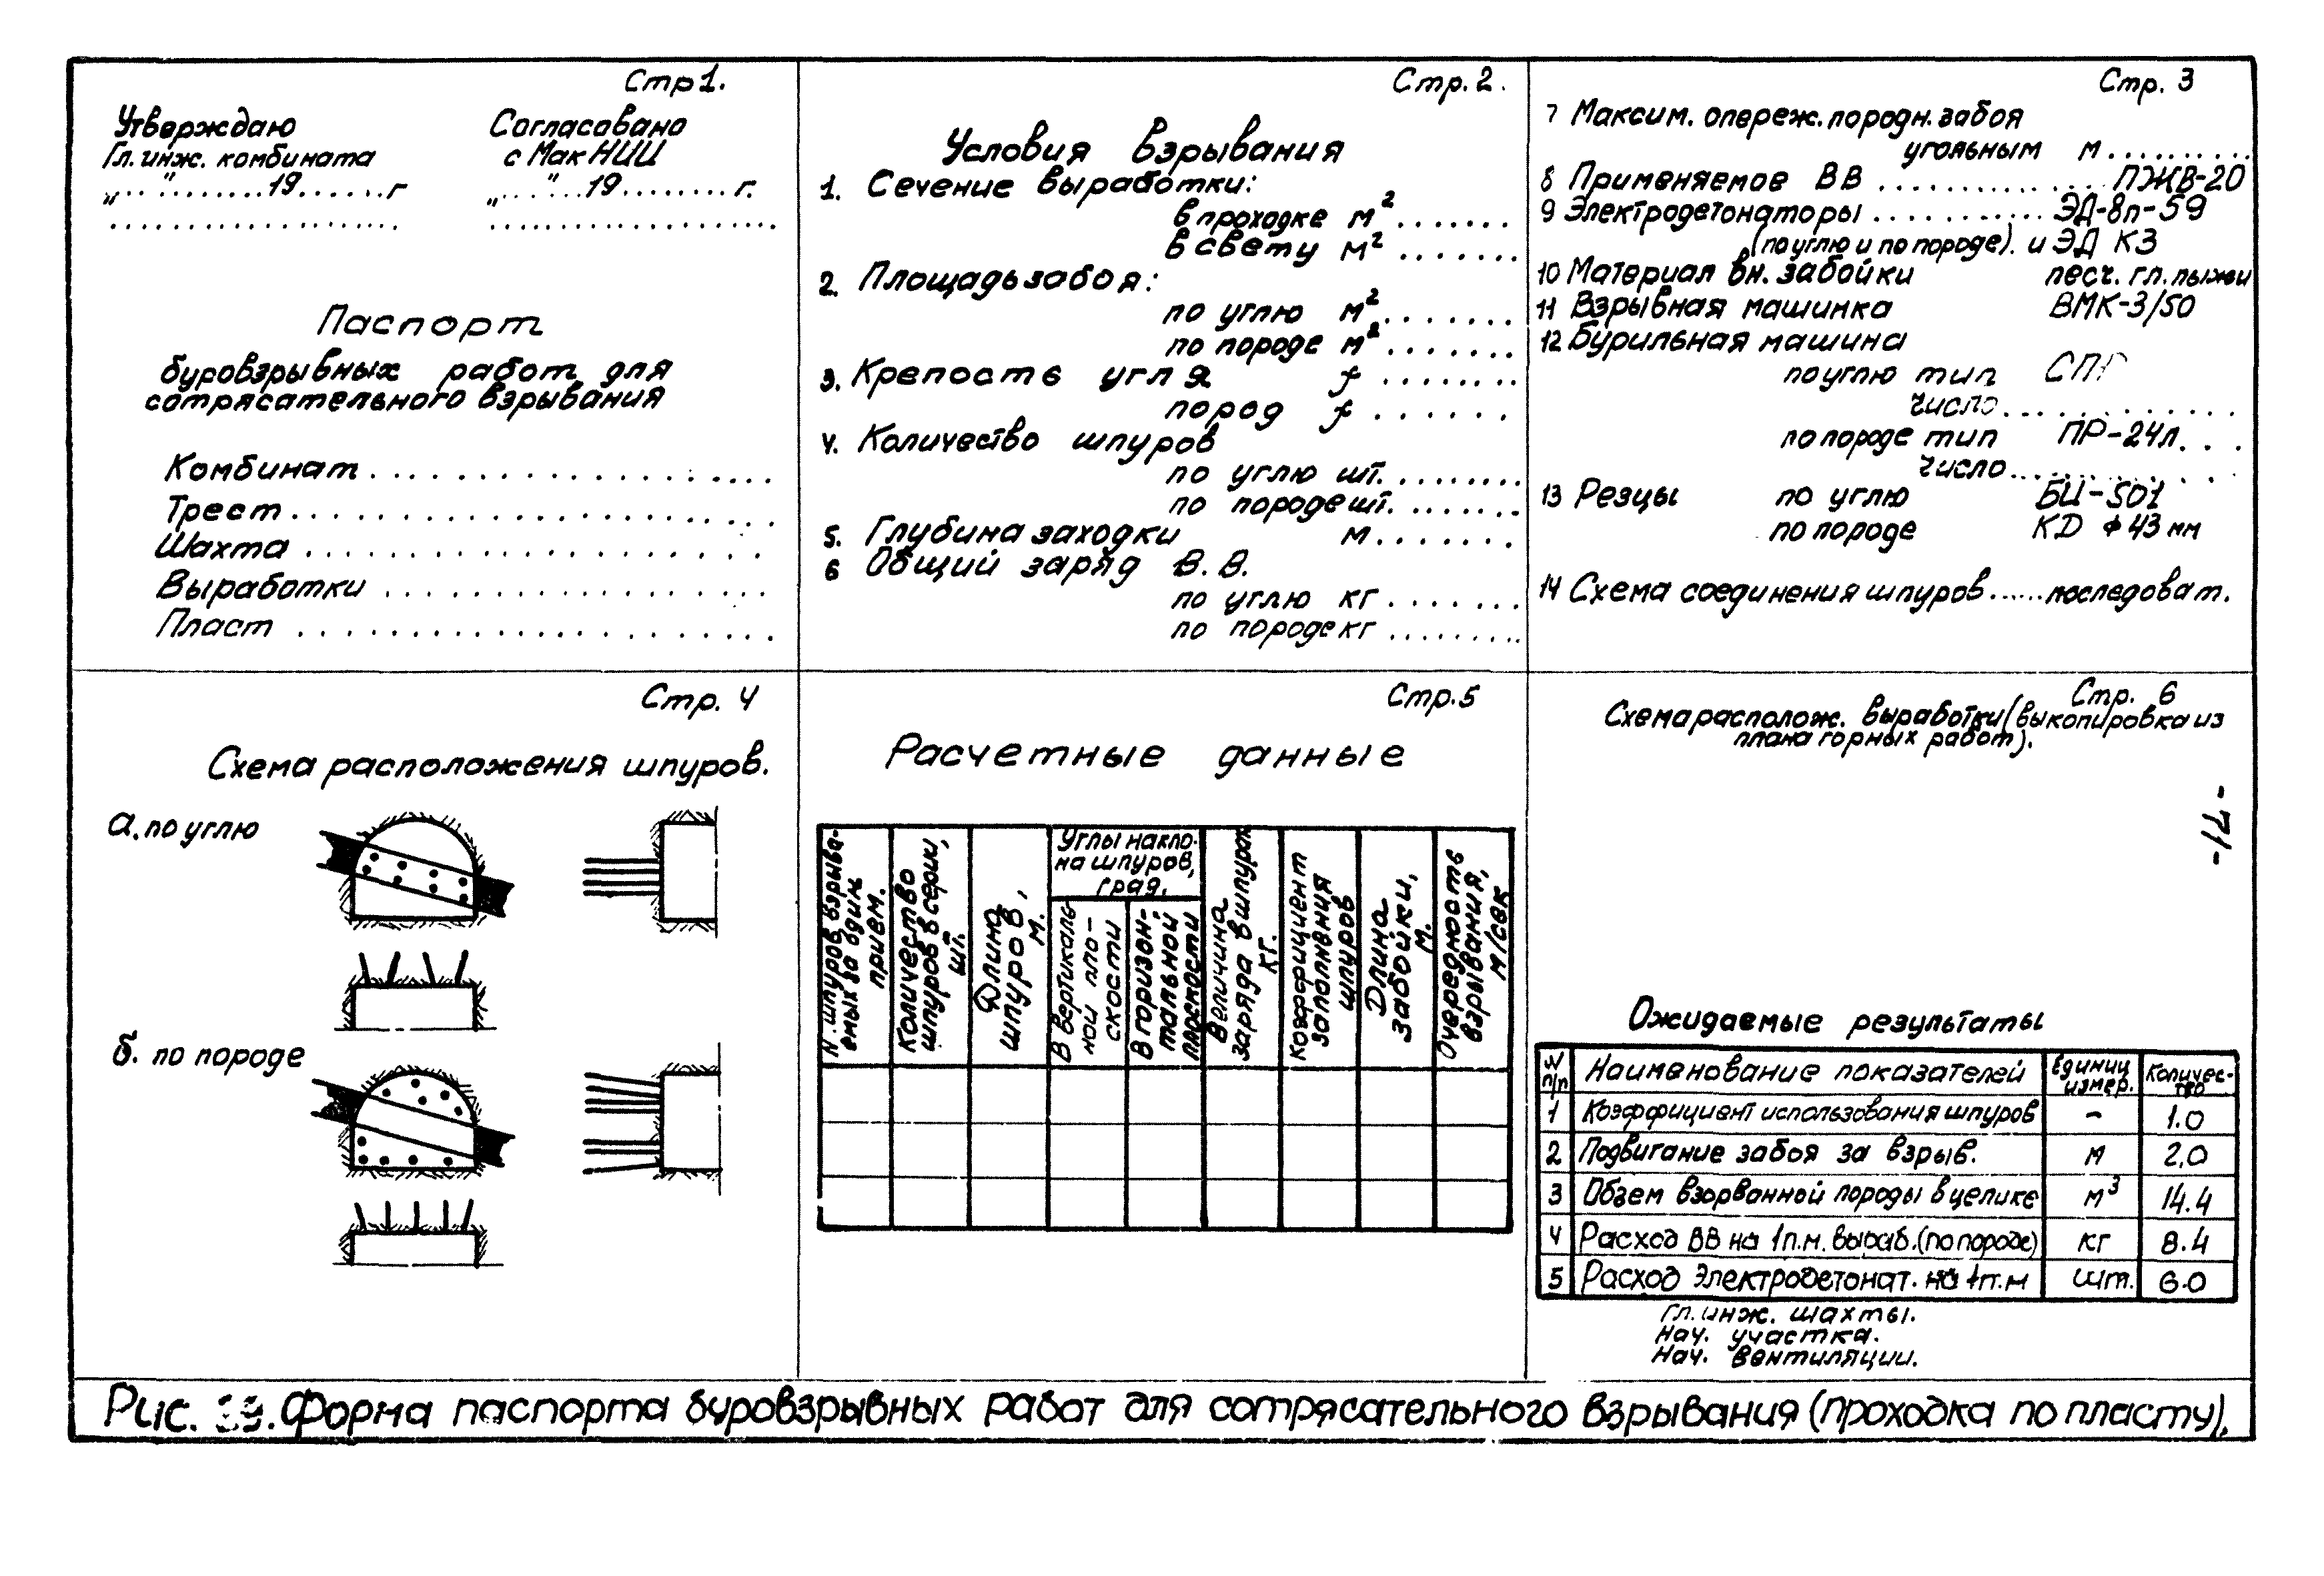 Стр 1.
Утверждаю
Гл. инж. комбината
„... "........19......г
....................
Согласовано
с МакНИИ
„.... "...19........г.
....................
Паспорт
буровзрывных работ для
сотрясательного взрывания
Комбинат....................
Трест....................
Шахта....................
Выработки....................
Пласт....................
Стр. 2.
Условия взрывания
1. Сечение выработки:
в проходке м².......
в свету м².......
2. Площадь забоя:
по углю м².......
по породе м².......
3. Крепость угля f........
пород f......
4. Количество шпуров
по углю шт........
по породе шт........
5. Глубина заходки м.......
6 Общий заряд В.В.
по углю кг.......
по породе кг........
Стр. 3
7 Максим. опереж. породн. забоя
угольным м..........
8 Применяемое ВВ ............... ПЖВ-20
9 Электродетонаторы ............ ЭД-8п-59
(по углю и по породе). и ЭД КЗ
10 Материал вн. забойки песч. гл. пыжи
11 Взрывная машинка ВМК-3/50
12 Бурильная машина
по углю тип
число..............
по породе тип ПР-24л...
число..............
13 Резцы по углю БИ-501
по породе КD ф 43 мм
14 Схема соединения шпуров.....последоват.
Стр. 4
Схема расположения шпуров.
а. по углю
б. по породе
Стр. 5
Расчетные данные
N шпуров, взрыва-
емых за один
прием.
Количество
шпуров в серии,
шт.
Длина
шпуров,
м.
Углы накло-
на шпуров,
град.
В вертикаль-
ной пло-
скости
В горизон-
тальной
плоскости
Величина
заряда в шпурах
кг.
Коэффициент
заполнения
шпуров
Длина
забойки,
м.
Очередность
взрывания,
м/сек
Стр. 6
Схема располож. выработки (выкопировка из
плана горных работ).
-71-
Ожидаемые результаты
N п/п Наименование показателей Единиц измер. Количес-тво
1 Коэффициент использования шпуров – 1.0
2 Подвигание забоя за взрыв. м 2,0
3 Обзем взорванной породы в целике м³ 14.4
4 Расход ВВ на 1п.м. выраб. (по породе) кг 8.4
5 Расход электродетонат. на 1п.м шт. 6.0
Гл. инж. шахты.
Нач. участка.
Нач. вентиляции.
Рис. Форма паспорта буровзрывных работ для сотрясательного взрывания (проходка по пласту).